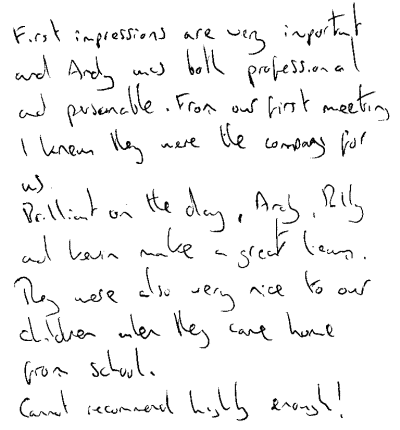 First impressions are very important
and Andy was both professional
and personable. From our first meeting
I knew they were the company for
us.
Brilliant on the day, Andy, Billy
and Kevin make a great team.
They were also very nice to our
children when they came home
from school.
Cannot recommend highly enough!